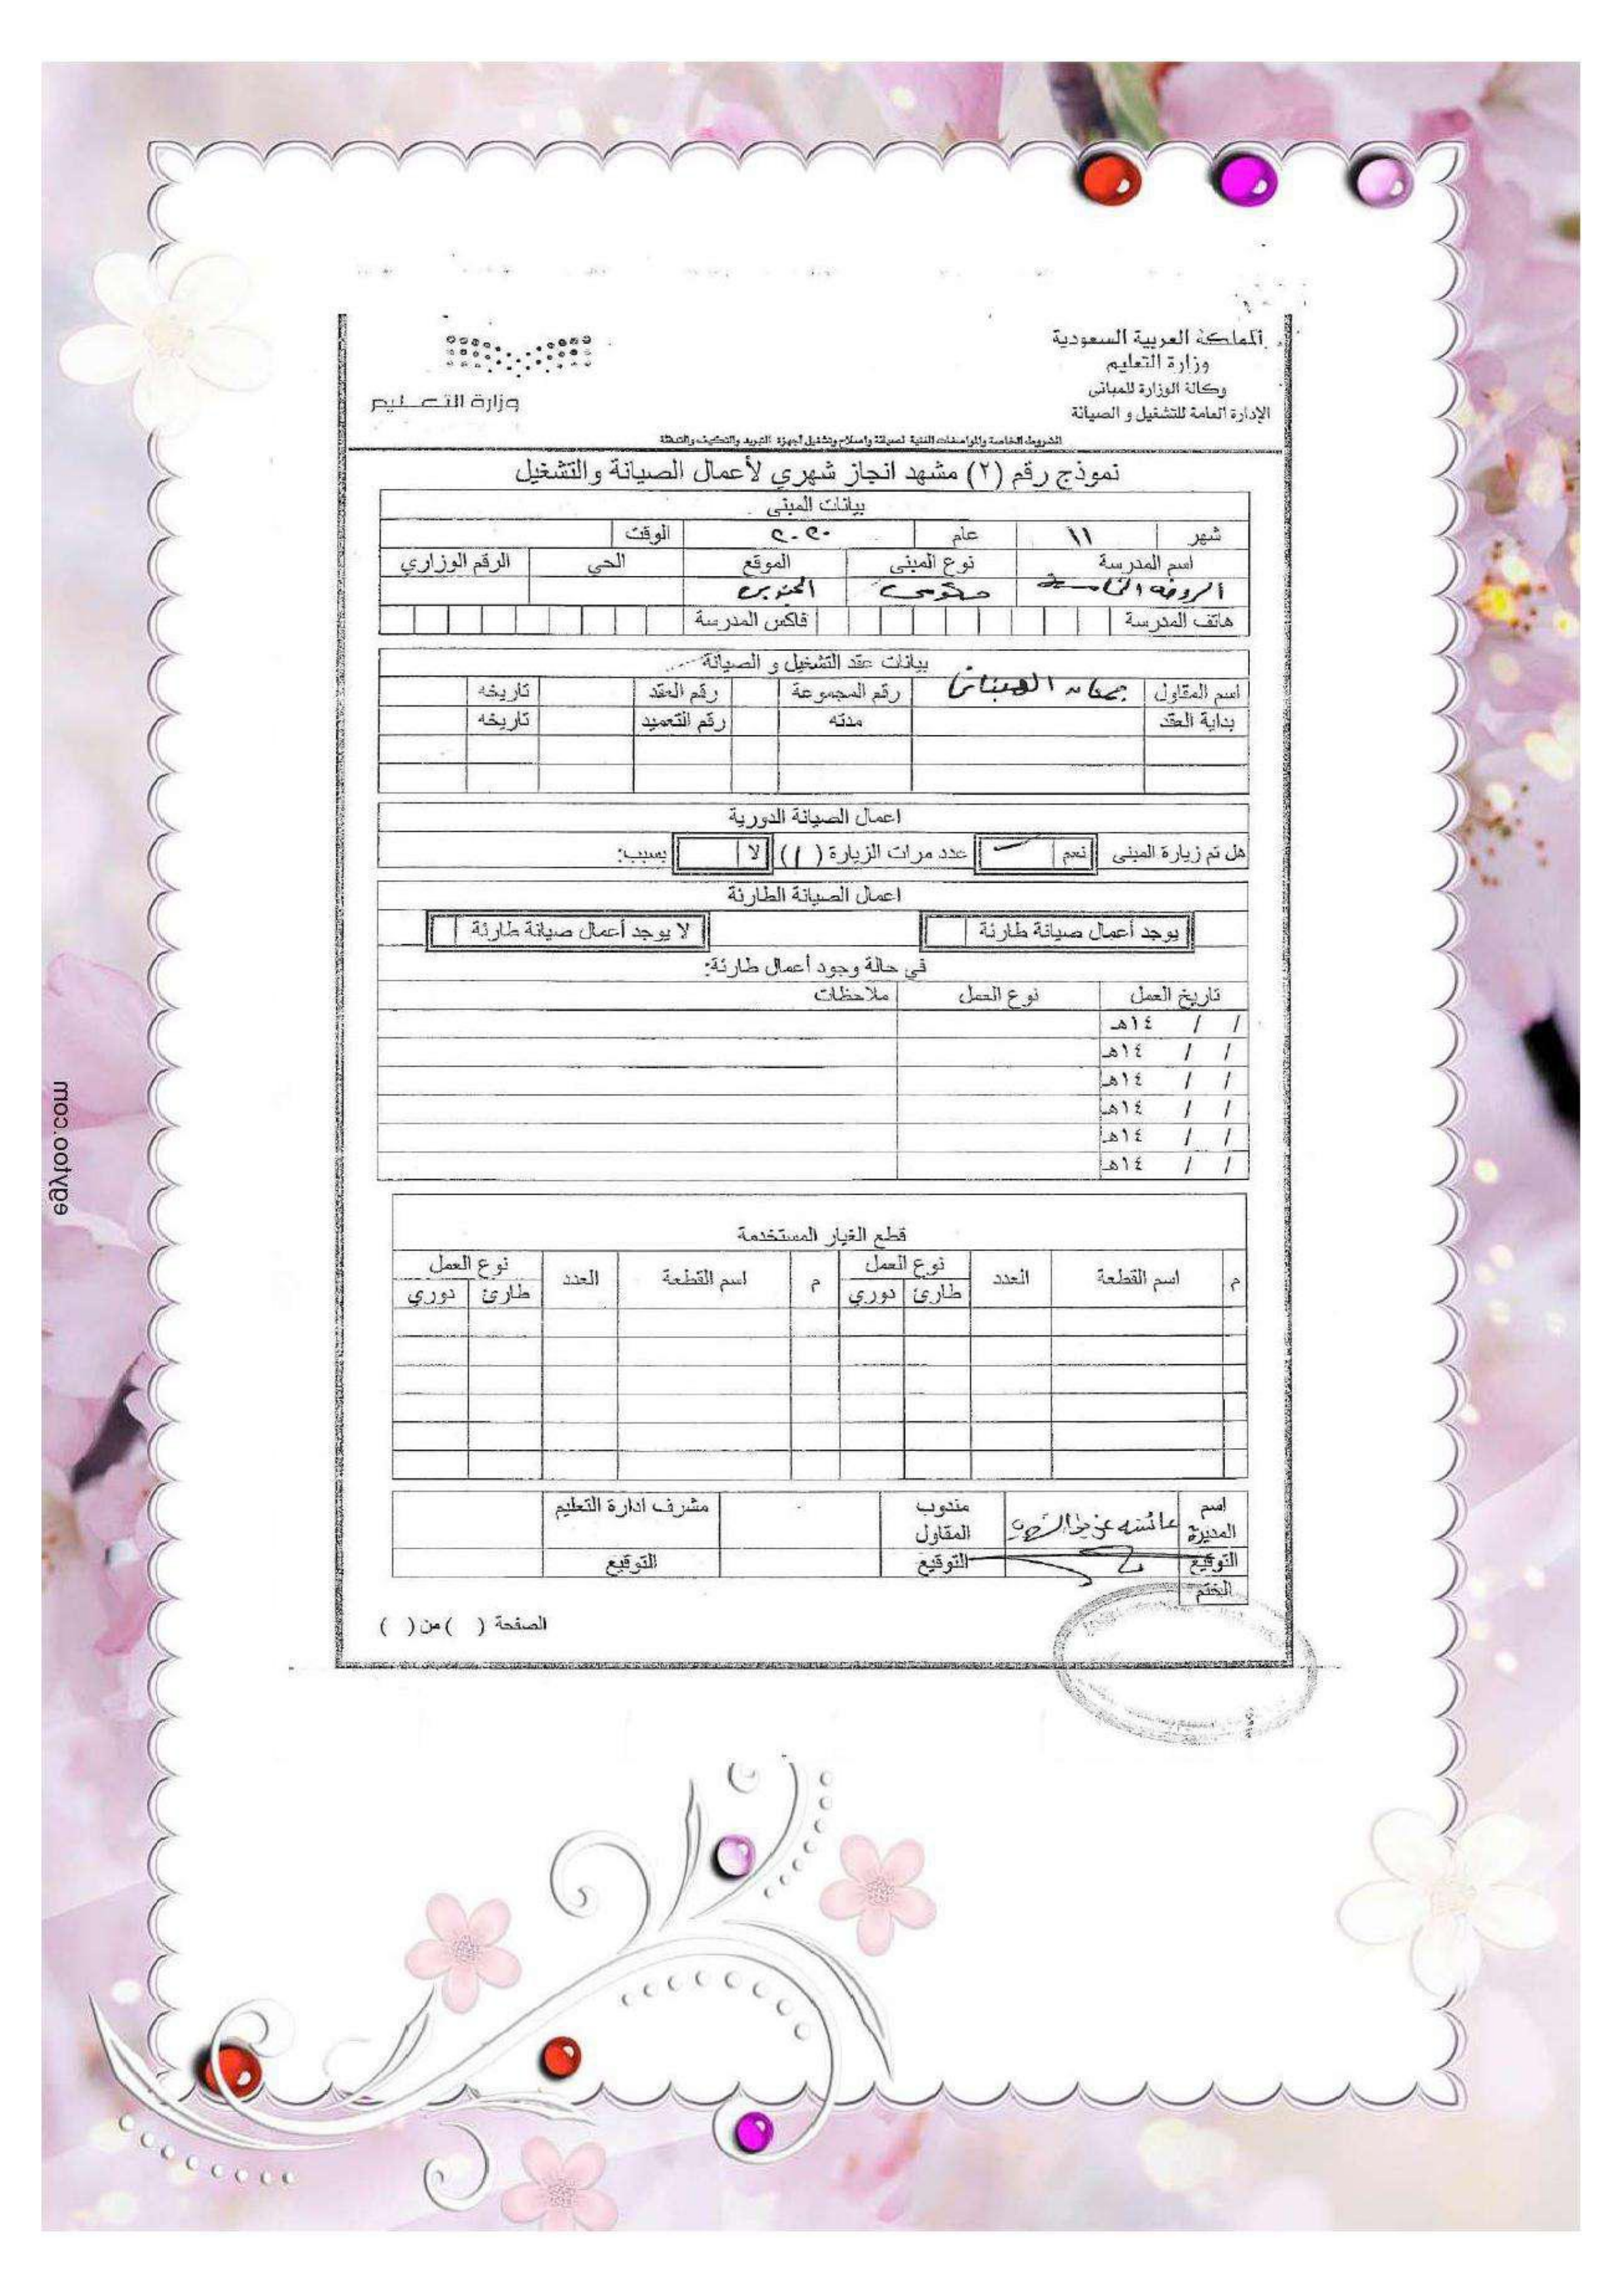 المملكة العربية السعودية
وزارة التعليم
وكالة الوزارة للمباني
الإدارة العامة للتشغيل و الصيانة
وزارة التعـــليم
الشروط الخاصة والمواصفات الفنية لصيانة واصلاح وتشغيل أجهزة التبريد والتكييف والتدفئة
نموذج رقم (٢) مشهد انجاز شهري لأعمال الصيانة والتشغيل
بيانات المبنى
شهر ١١ عام ٢٠٢٠ الوقت
اسم المدرسة نوع المبنى الموقع الحي الرقم الوزاري
الروضة الخامسة حكومي
هاتف المدرسة فاكس المدرسة
بيانات عقد التشغيل و الصيانة
اسم المقاول رقم المجموعة رقم العقد تاريخه
بداية العقد مدته رقم التعميد تاريخه
اعمال الصيانة الدورية
هل تم زيارة المبنى نعم عدد مرات الزيارة (١) لا بسبب:
اعمال الصيانة الطارئة
يوجد أعمال صيانة طارئة لا يوجد أعمال صيانة طارئة
في حالة وجود أعمال طارئة:
تاريخ العمل نوع العمل ملاحظات
/ / ١٤هـ
/ / ١٤هـ
/ / ١٤هـ
/ / ١٤هـ
/ / ١٤هـ
/ / ١٤هـ
قطع الغيار المستخدمة
م اسم القطعة العدد نوع العمل م اسم القطعة العدد نوع العمل
طارئ دوري طارئ دوري
اسم المديرة عائشه مندوب المقاول مشرف ادارة التعليم
التوقيع التوقيع التوقيع
الختم
الصفحة ( ) من ( )
egytoo.com